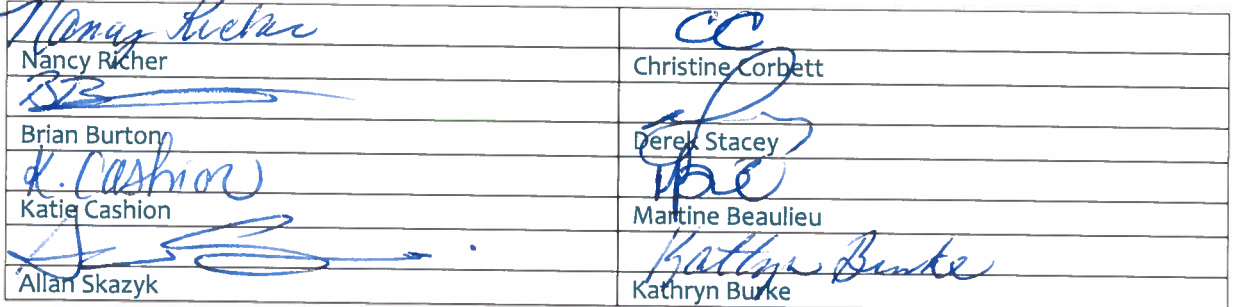 Nancy Richer CC
Nancy Richer Christine Corbett
BB
Brian Burton Derek Stacey
K. Cashion
Katie Cashion Martine Beaulieu
Kathryn Burke
Allan Skazyk Kathryn Burke